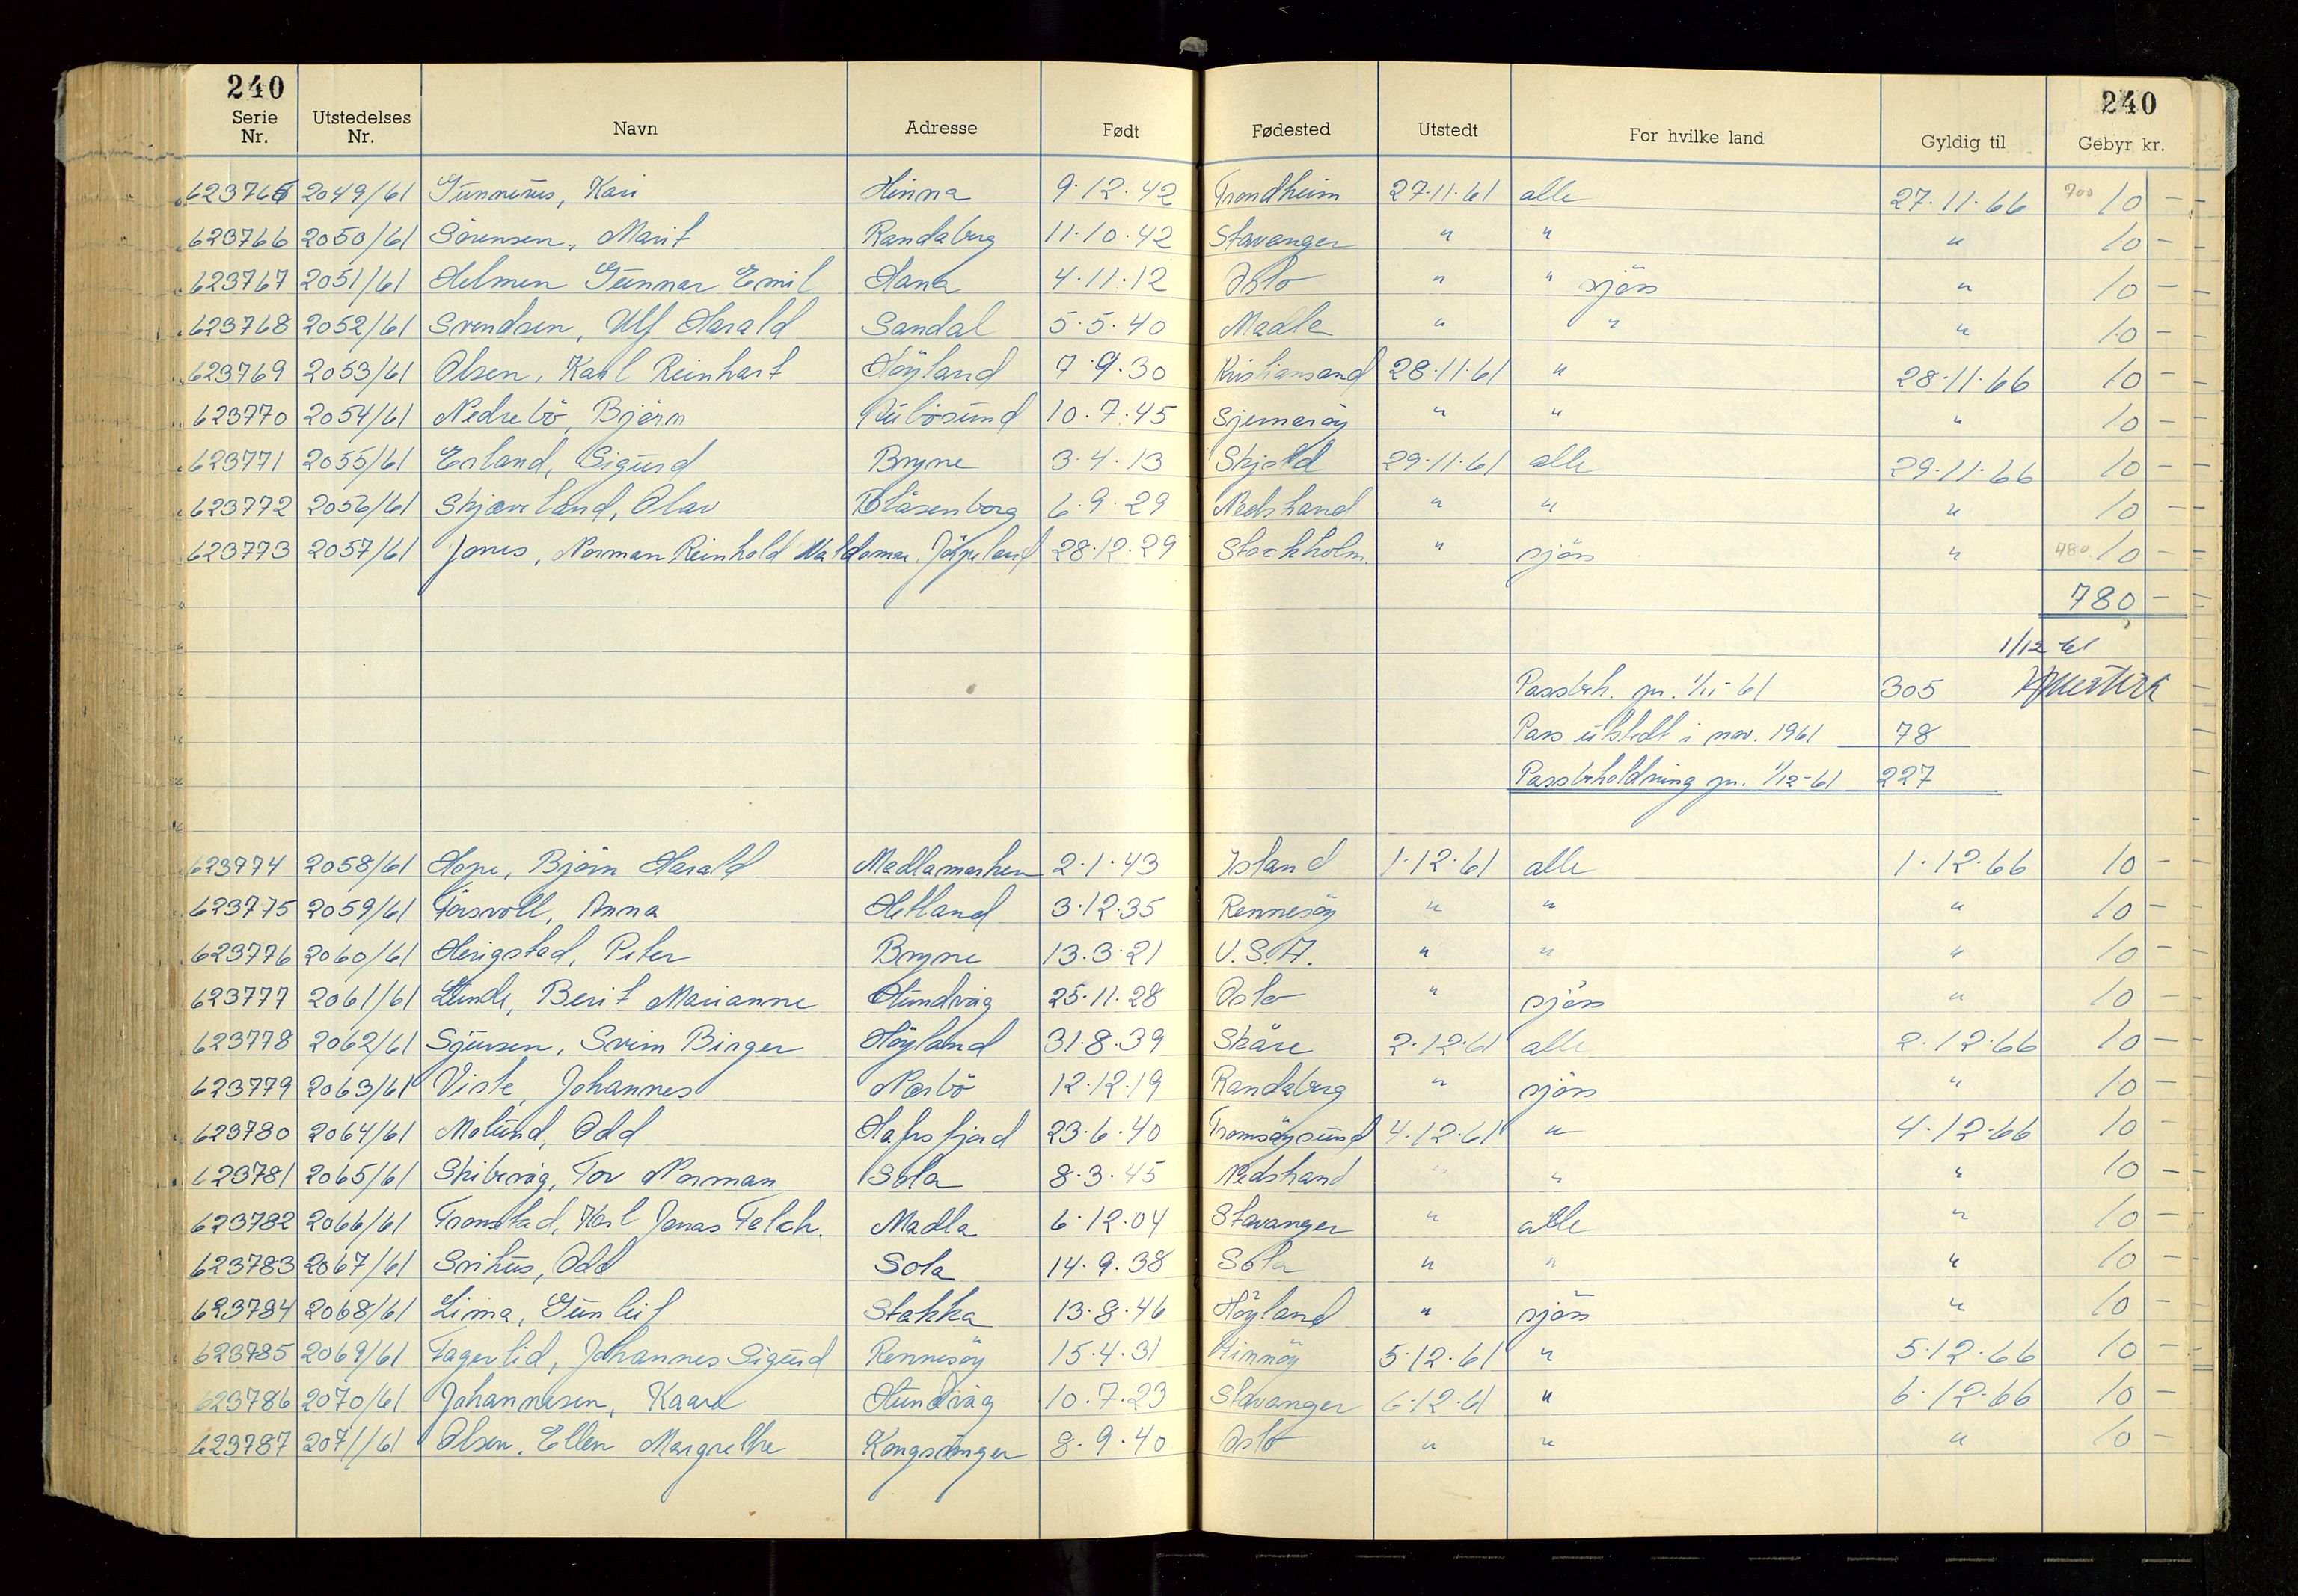 240 240
Serie Nr. Utstedelses Nr. Navn Adresse Født Fødested Utstedt For hvilke land Gyldig til Gebyr kr.
623765 2049/61 Gunnerus, Kari Hinna 9.12.42 Trondheim 27.11.61 alle 27.11.66 700 10 -
623766 2050/61 Sörensen, Marit Randaberg 11.10.42 Stavanger " " " 10 -
623767 2051/61 Helmen Gunnar Emil Hana 4.11.12 Oslo " " sjöss " 10 -
623768 2052/61 Svendsen, Ulf Harald Sandal 5.5.40 Madla " " " 10 -
623769 2053/61 Olsen, Karl Reinhart Höyland 7.9.30 Kristiansand 28.11.61 " 28.11.66 10 -
623770 2054/61 Nedrebö, Björn 10.7.45 Sjernaröy " " " 10 -
623771 2055/61 Erland, Sigurd Bryne 3.4.13 Skjold 29.11.61 alle 29.11.66 10 -
623772 2056/61 Skjæveland, Olav Blåsenborg 6.9.29 Nedstrand " " " 10 -
623773 2057/61 Jones, Norman Reinhold Waldemar, Jörpeland 28.12.29 Stockholm " sjöss " 780. 10 -
780 -
1/12-61
Passbeh. pr. 1/11-61 305
Pass utstedt i nov. 1961 78
Passbeholdning pr. 1/12-61 227
623974 2058/61 Hope, Björn Harald Madlamarken 2.1.43 Island 1.12.61 alle 1.12.66 10 -
623775 2059/61 Torsvoll, Anna Hetland 3.12.35 Rennesöy " " " 10 -
623776 2060/61 Herigstad, Peter Bryne 13.3.21 U.S.A. " " " 10 -
623777 2061/61 Lunde, Berit Marianne Hundvåg 25.11.28 Oslo " sjöss " 10 -
623778 2062/61 Sjursen, Svein Birger Höyland 31.8.39 Skåre 2.12.61 alle 2.12.66 10 -
623779 2063/61 Viste, Johannes Nærbö 12.12.19 Randaberg " sjöss " 10 -
623780 2064/61 Molund, Odd Hafrsfjord 23.6.40 Tromsöysund 4.12.61 " 4.12.66 10 -
623781 2065/61 Skibevåg, Tor Norman Sola 8.3.45 Nedstrand " " " 10 -
623782 2066/61 Tromstad, Karl Jonas Falch. Madla 6.12.04 Stavanger " alle " 10 -
623783 2067/61 Svihus, Odd Sola 14.9.38 Sola " " " 10 -
623784 2068/61 Lima, Gunleif Stakka 13.8.46 Höyland " sjöss " 10 -
623785 2069/61 Fagerlid, Johannes Sigurd Rennesöy 15.4.31 Finnöy 5.12.61 " 5.12.66 10 -
623786 2070/61 Johannesen, Kaare Hundvåg 10.7.23 Stavanger 6.12.61 " 6.12.66 10 -
623787 2071/61 Olsen, Ellen Margrethe Kongsvinger 8.9.40 Oslo " " " 10 -